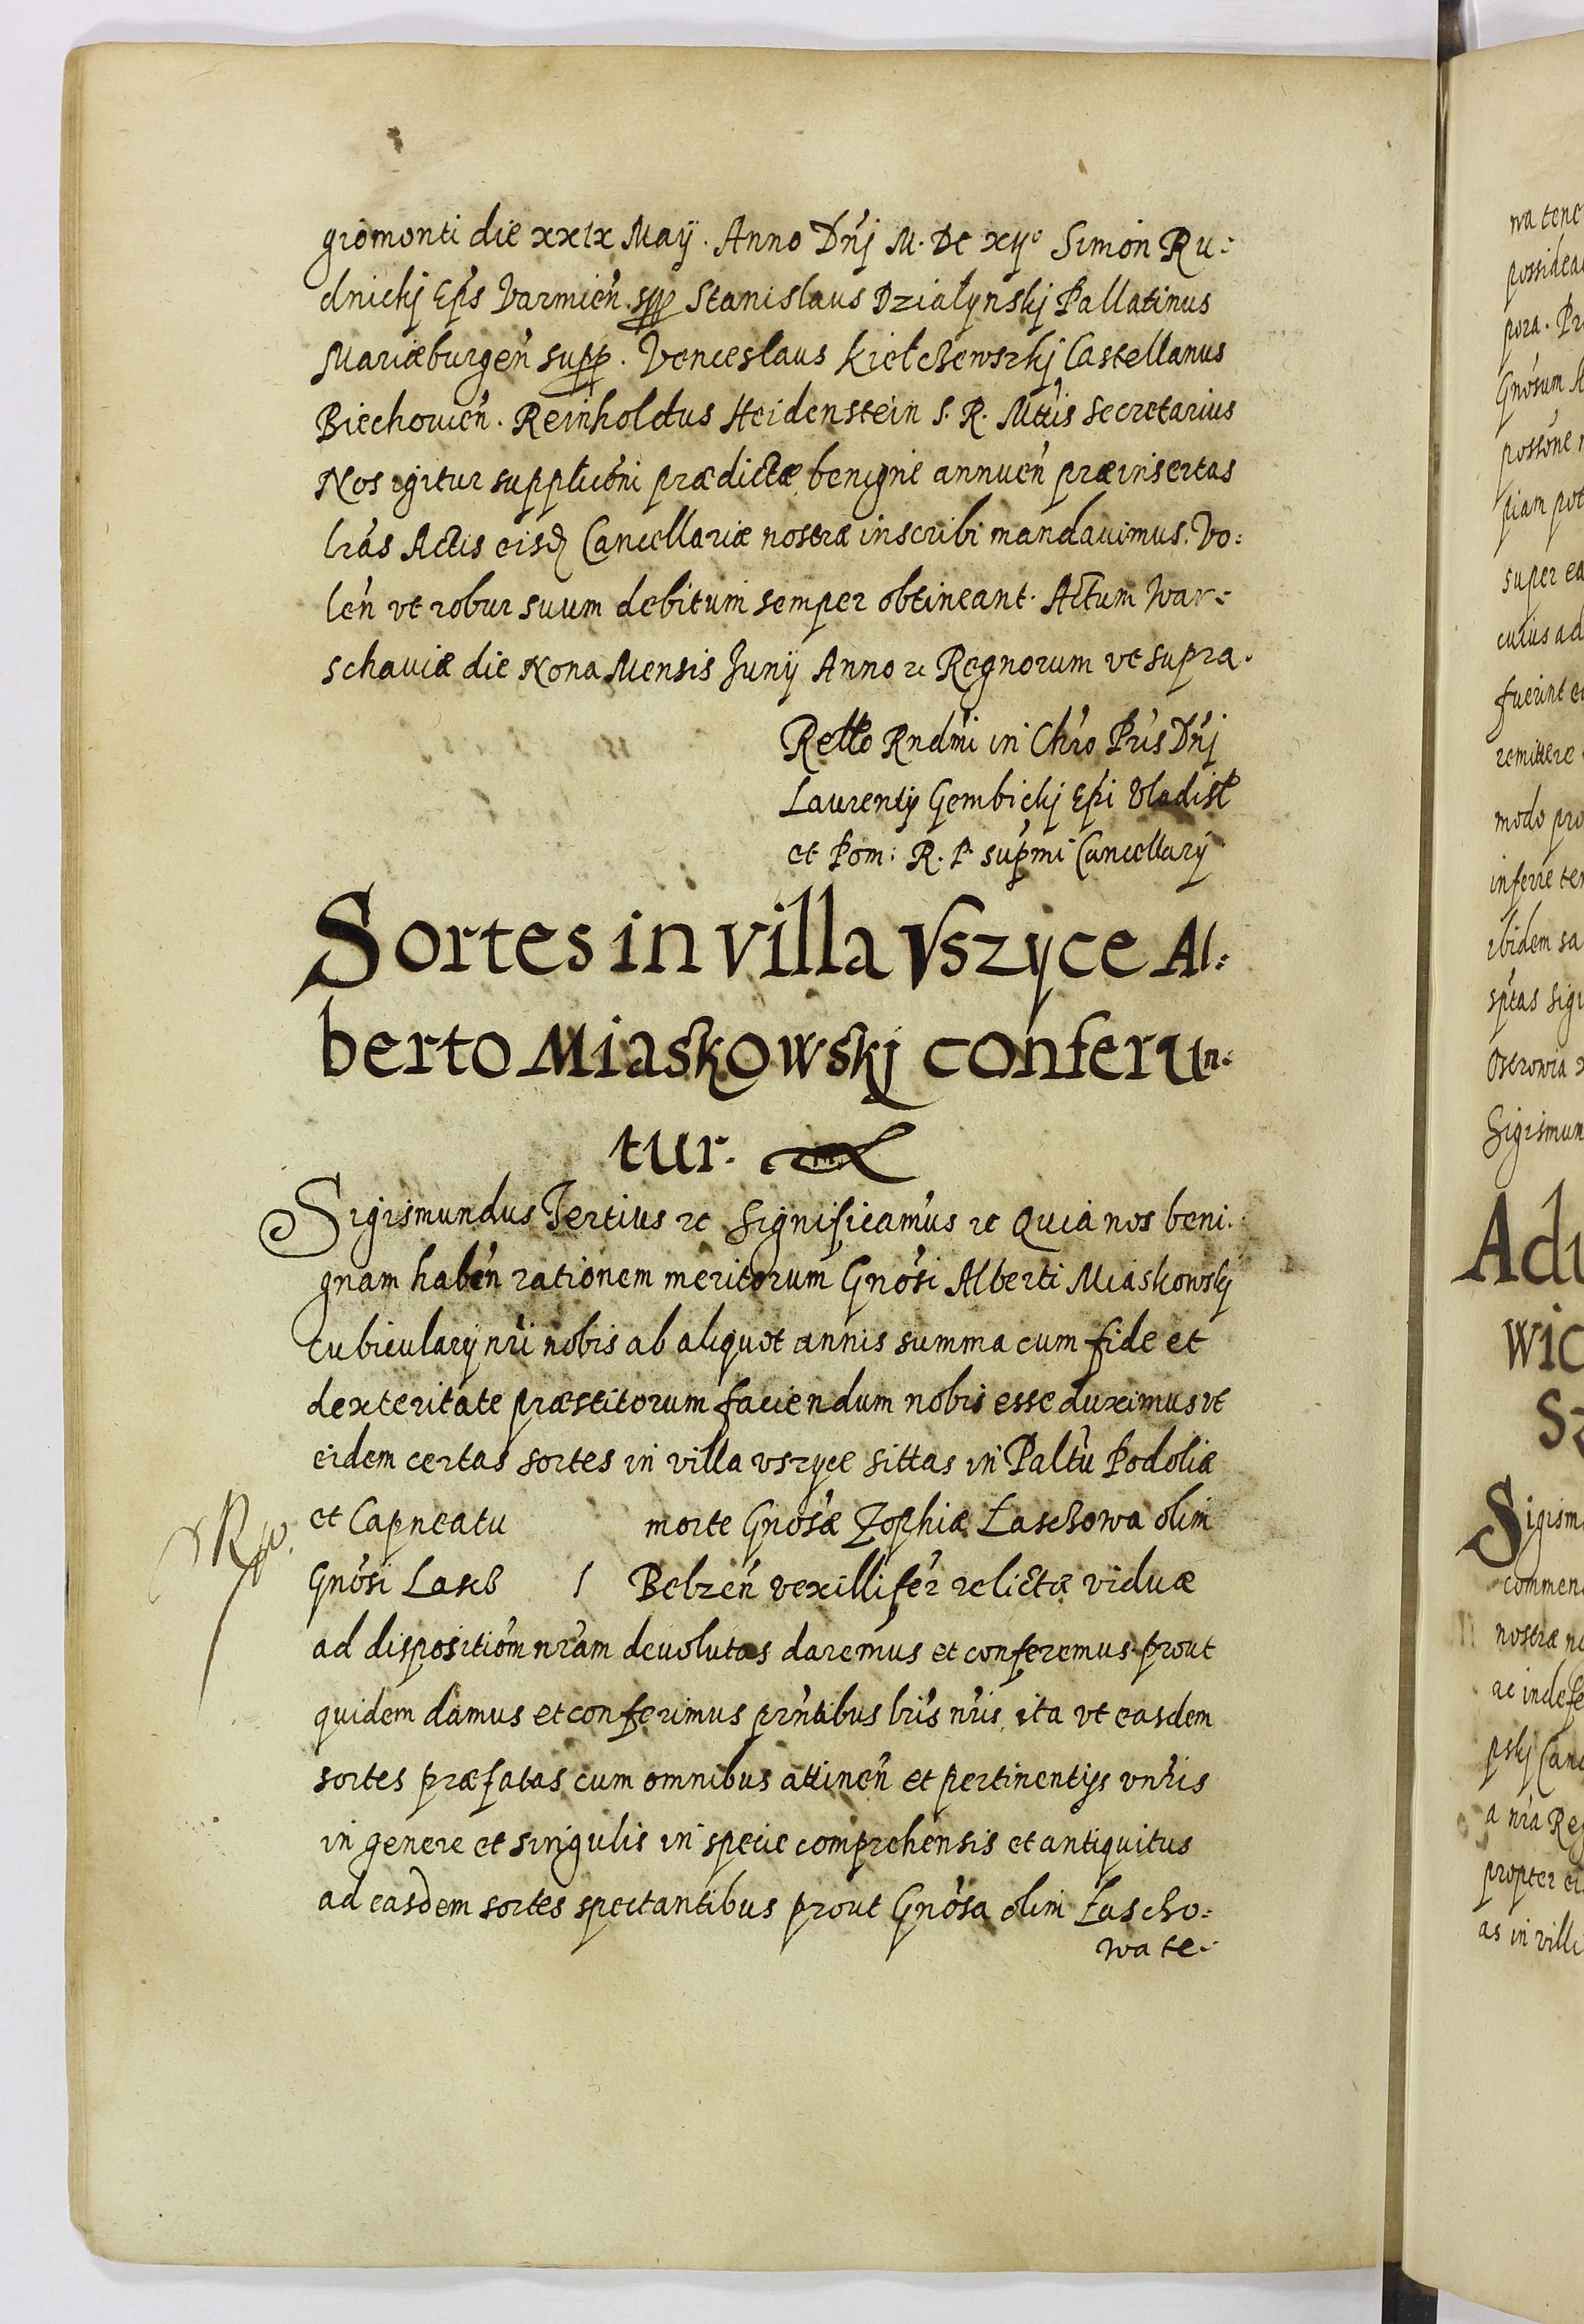 giomonti die xxix Maÿ. Anno Dn̄j M. DC xijº Simon Ru:
dnickj Ep̄s Varmień. spp Stanislaus Działynskj Pallatinus
Mariæburgeń supp. Venceslaus Kiełchewszkj Castellanus
Biechovień. Reinholdus Heidenstein S. R. Mttis Secretarius
Nos igitur supplictōni prædictæ benigne annueń præinsertas
lrās Actis eisdę Cancellariæ nostræ inscribi mandavimus. Vo:
leń vt robur suum debitum semper obtineant. Actum War:
schaviæ die Nona Mensis Junij Anno ꝛc Regnorum vt supra.
Rello Rndm̄i in Chr̄o Pr̄is Dn̄j
Laurentij Gembickj Ep̄i Vladisł
et Pom: R. P. sup̄mi Cancellarÿ
Sortes in villa Vszyce Al:
berto Miaskowskj conferun:
tur.
Sigismundus Tertius ꝛc Significam̄us ꝛc Quia nos beni:
gnam habeń rationem meritorum Gnōsi Alberti Miaskowskj
cubicularij nr̄i nobis ab aliquot annis summa cum fide et
dexteritate præstitorum faciendum nobis esse duximus vt
eidem certas sortes in villa vszyce sittas in Paltū Podoliæ
et Capneatu morte Gnōsæ Zophiæ Laschowa olim
Gnōsi Lasch Belzeń vexillifer̄ relictæ viduæ
ad disposition̄m nr̄am devolutas daremus et conferemus prout
quidem damus et conferimus prn̄tibus lr̄is nr̄is, ita vt easdem
sortes præfatas cum omnibus attineń et pertinentijs vnr̄is
in genere et singulis in specie comprehensis et antiquitus
ad easdem sortes spectantibus prout Gnōsa olim Lascho:
wa te:
wa tene
possidea
pora. Pr
Gnōsum
possōne
piam pot
super ea
cuius ad
fuerint
remittere
modo pro
inferre te
ibidem sa
sptas Sigi
Ostrowia
Sigismun
Adu
wic
Sz
Sigism
commen
nostræ
ac indefe
pskj Can
a nr̄a Reg
propter
as in vill